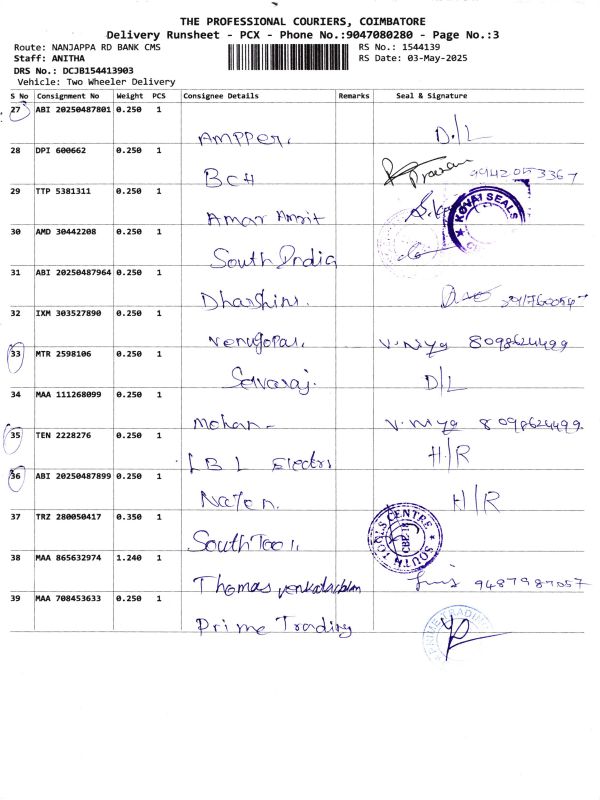 THE PROFESSIONAL COURIERS, COIMBATORE
Delivery Runsheet - PCX - Phone No.:9047080280 - Page No.:3
Route: NANJAPPA RD BANK CMS RS No.: 1544139
Staff: ANITHA RS Date: 03-May-2025
DRS No.: DCJB154413903
Vehicle: Two Wheeler Delivery
S No Consignment No Weight PCS Consignee Details Remarks Seal & Signature
27 ABI 20250487801 0.250 1
Ampper. D/L
28 DPI 600662 0.250 1
BCH
29 TTP 5381311 0.250 1
Amar Amrit KOVAI SEALS
30 AMD 30442208 0.250 1
South India
31 ABI 20250487964 0.250 1
Dharshini.
32 IXM 303527890 0.250 1
Venugopal. 8098624499
33 MTR 2598106 0.250 1
Selvaraj. D/L
34 MAA 111268099 0.250 1
Mohan- 8098624499.
35 TEN 2228276 0.250 1
LBL H/R
36 ABI 20250487899 0.250 1
H/R
37 TRZ 280050417 0.350 1
South Tool. SOUTH TOOLS CENTRE
38 MAA 865632974 1.240 1
Thomas 9487987057
39 MAA 708453633 0.250 1
Prime Trading PRIME TRADING